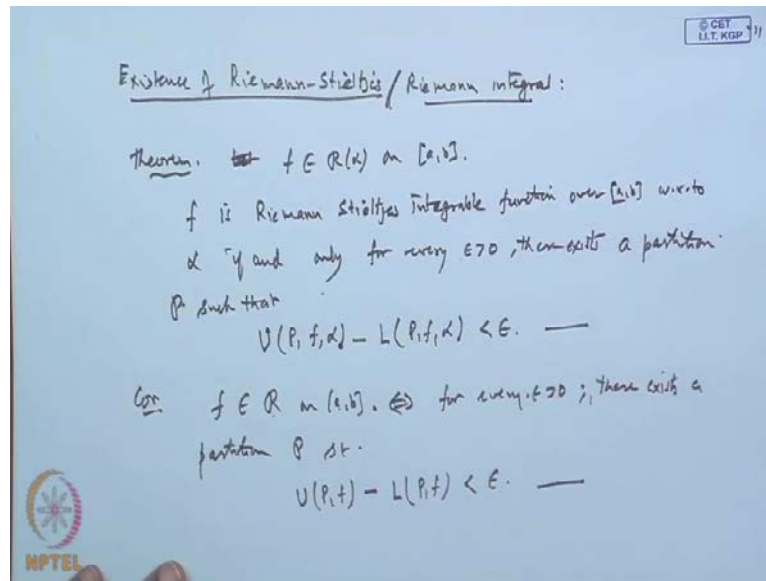 © CET
I.I.T. KGP
Existence of Riemann-Stieltjes / Riemann integral :
Theorem. f ∈ R(α) on [a,b].
f is Riemann Stieltjes Integrable function over [a,b] w.r.to
α if and only for every ε>0, there exists a partition
P such that
U(P, f, α) - L(P, f, α) < ε. —
Cor f ∈ R on [a,b]. ⇔ for every ε>0 ; there exists a
partition P st.
U(P, f) - L(P, f) < ε. —
NPTEL